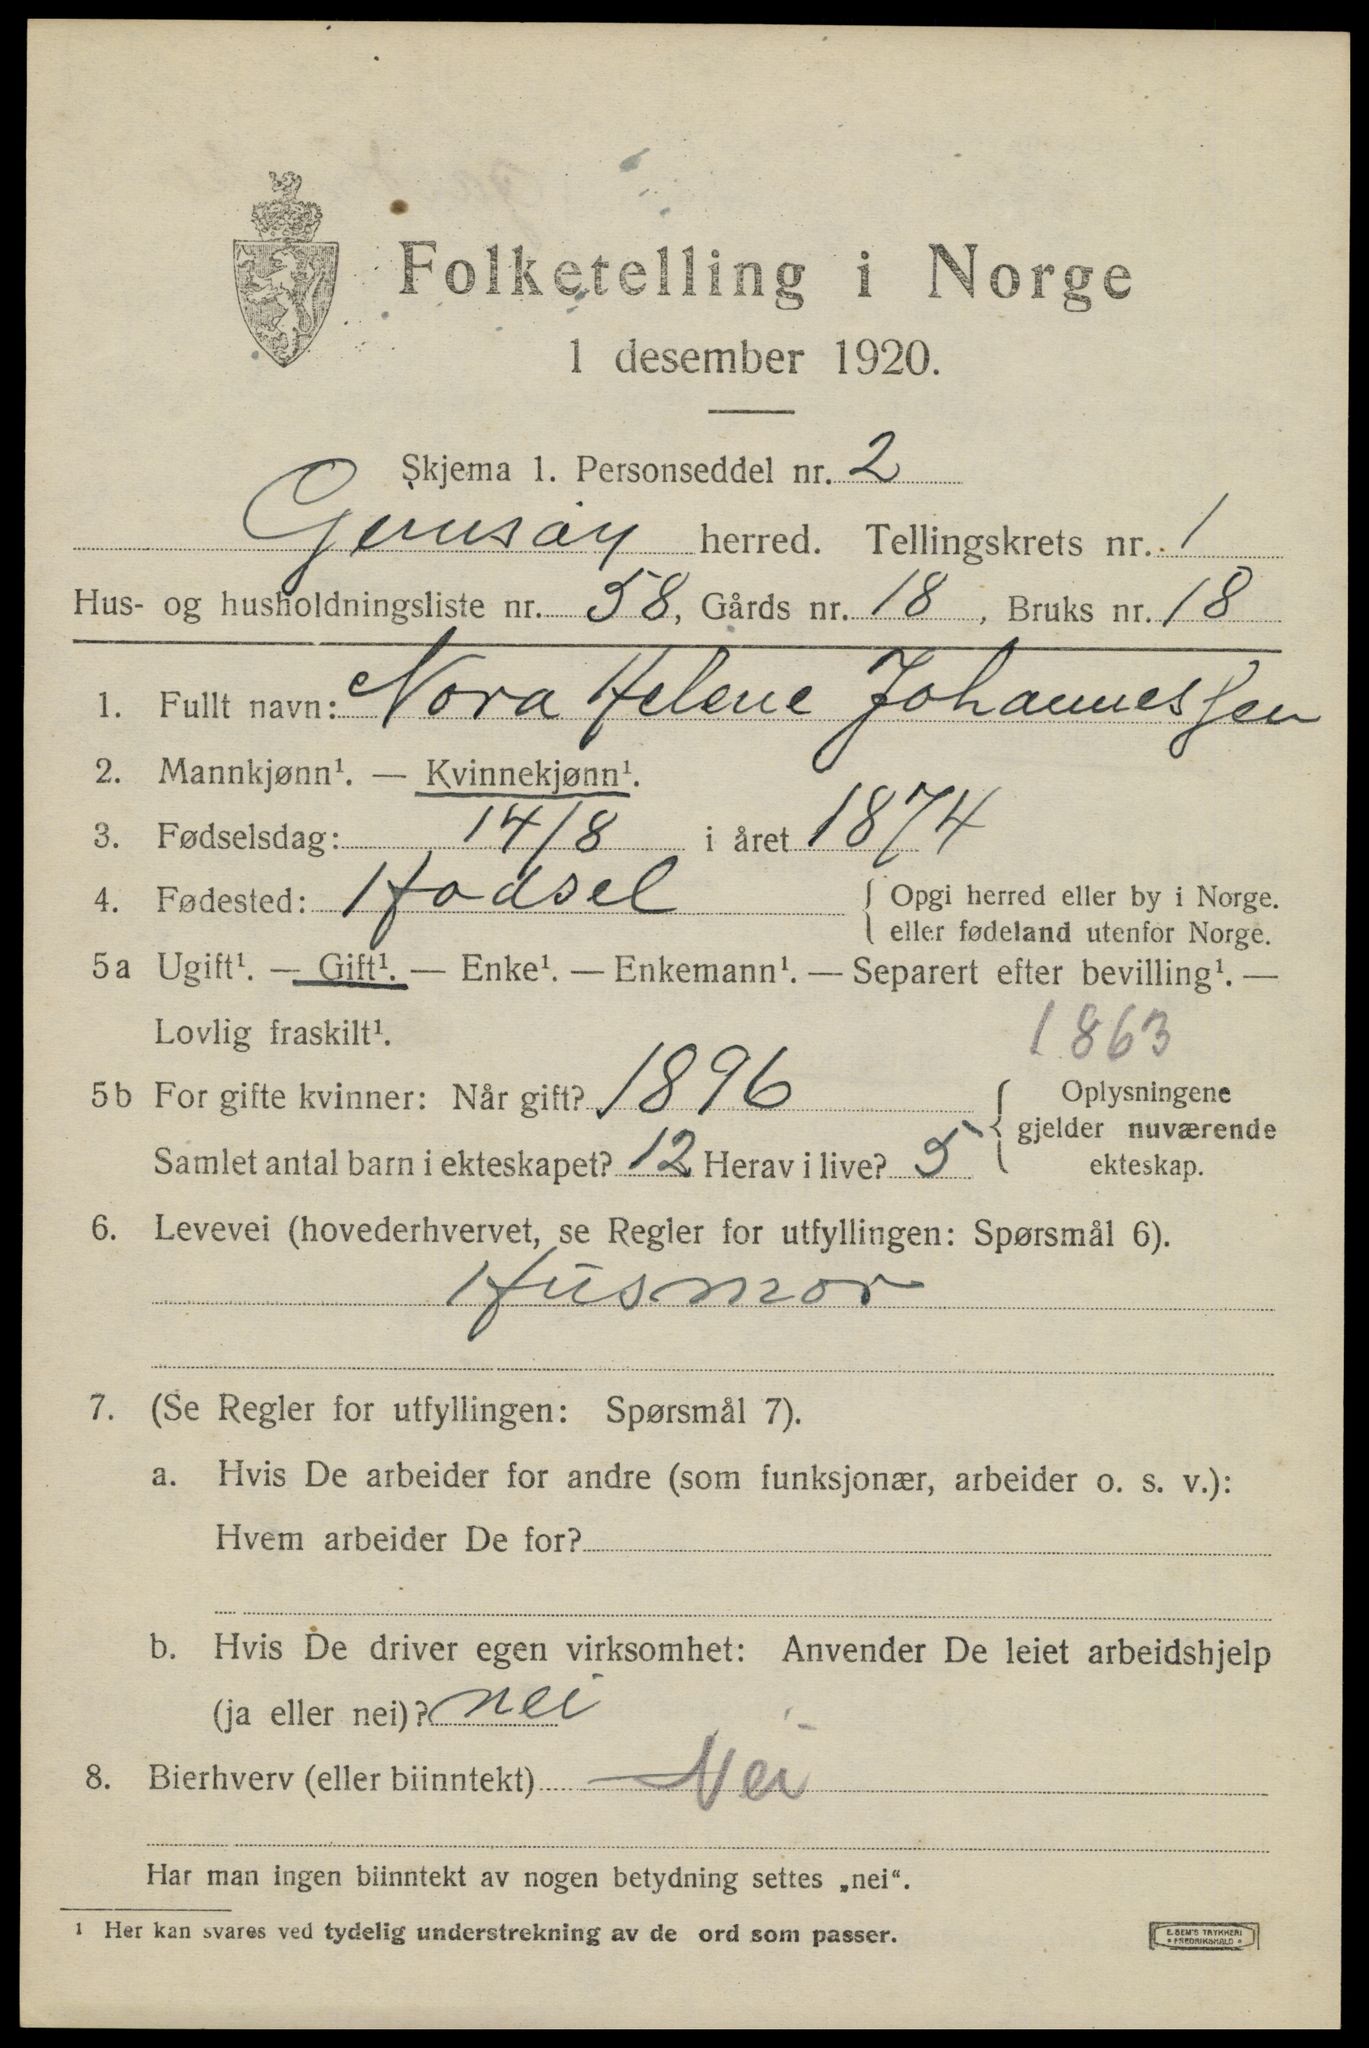 Folketelling i Norge
1 desember 1920.
Skjema 1. Personseddel nr. 2
herred. Tellingskrets nr. 1
Hus- og husholdningsliste nr. 58, Gårds nr. 18, Bruks nr. 18
1. Fullt navn: Nora Helene Johannessen
2. Mannkjønn¹. — Kvinnekjønn¹.
3. Fødselsdag: 14/8 i året 1874
4. Fødested: Hadsel { Opgi herred eller by i Norge.
eller fødeland utenfor Norge.
5a Ugift¹. — Gift¹. — Enke¹. — Enkemann¹. — Separert efter bevilling¹. —
Lovlig fraskilt¹. 1863
5b For gifte kvinner: Når gift? 1896 { Oplysningene
gjelder nuværende
Samlet antal barn i ekteskapet? 12 Herav i live? 5 ekteskap.
6. Levevei (hovederhvervet, se Regler for utfyllingen: Spørsmål 6).
Husmor
7. (Se Regler for utfyllingen: Spørsmål 7).
a. Hvis De arbeider for andre (som funksjonær, arbeider o. s. v.):
Hvem arbeider De for?
b. Hvis De driver egen virksomhet: Anvender De leiet arbeidshjelp
(ja eller nei)? nei
8. Bierhverv (eller biinntekt) Nei
Har man ingen biinntekt av nogen betydning settes „nei“.
¹ Her kan svares ved tydelig understrekning av de ord som passer.
E. SEM'S TRYKKERI
* FREDRIKSHALD *